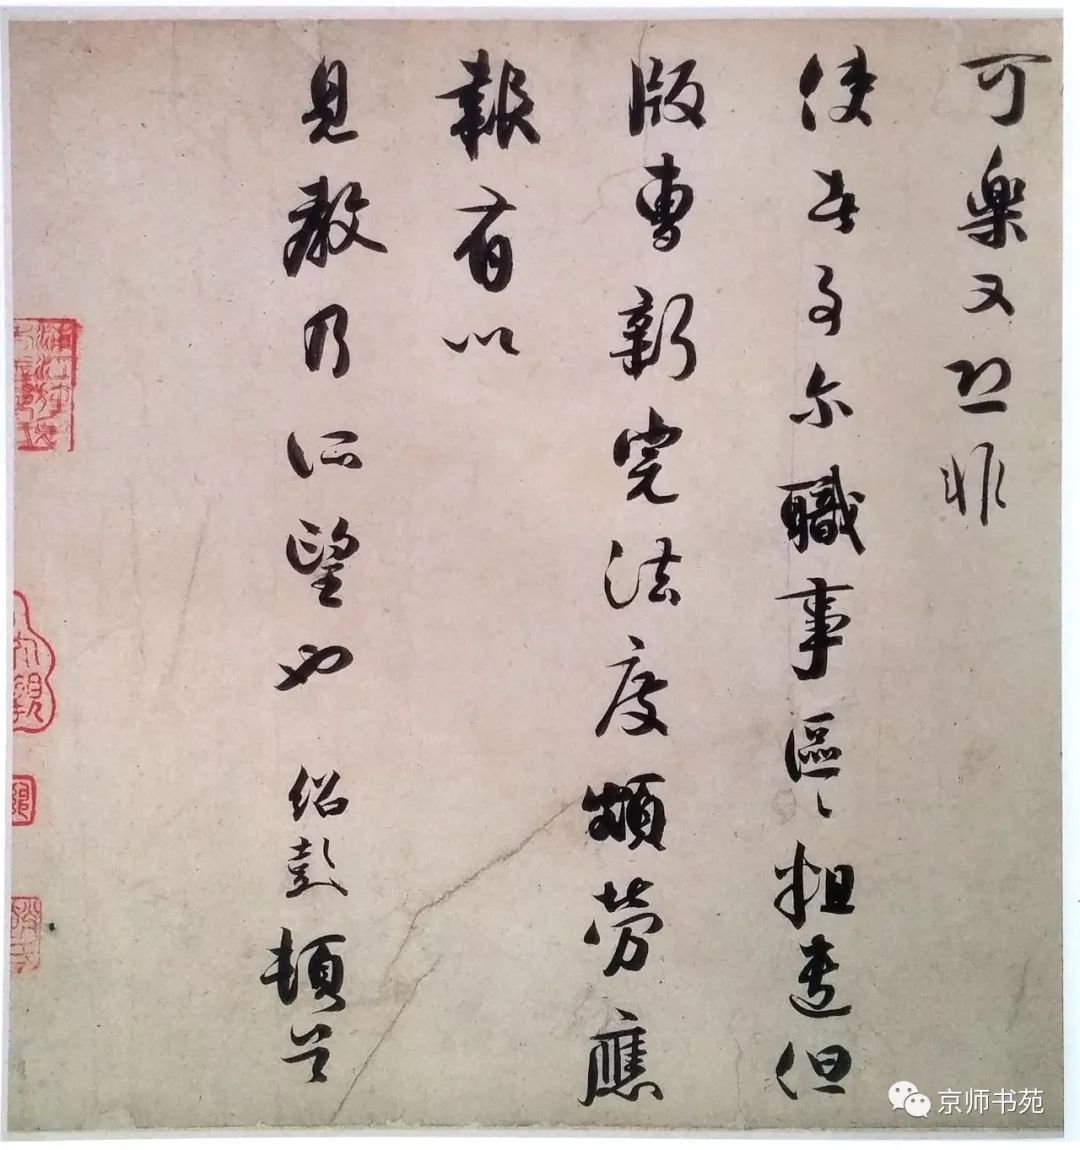 可樂又恐非
使者事尔職事區〻粗遣但
版曹新完法度頗勞應
報有以
見教乃所望也 紹彭頓首
京师书苑